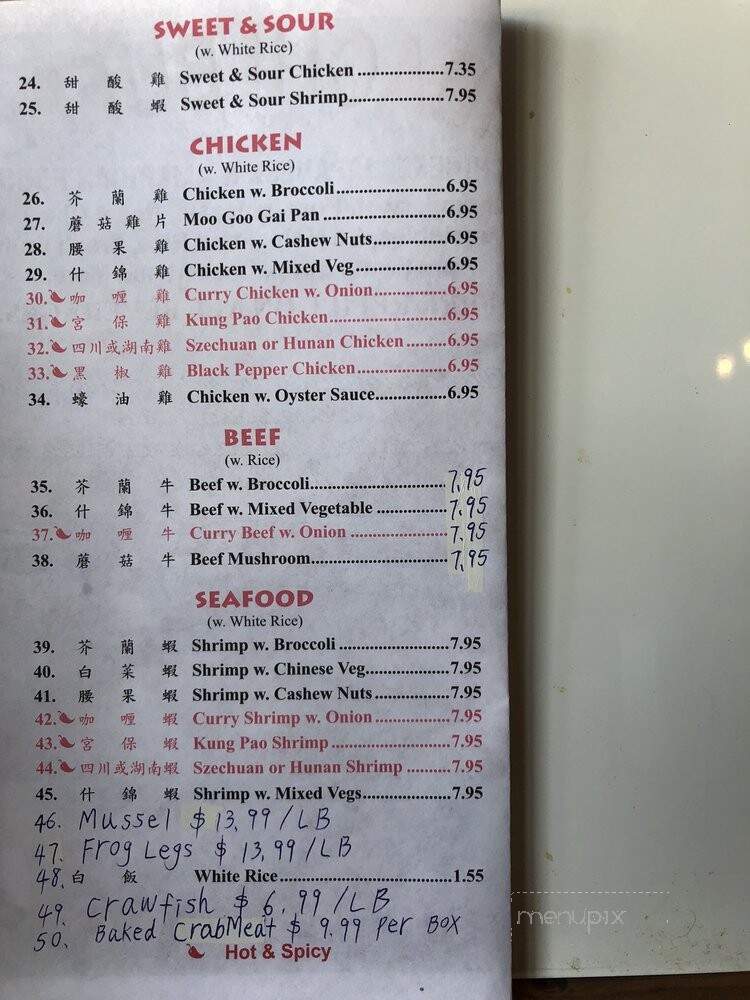 SWEET & SOUR
(w. White Rice)
24. 甜 酸 雞 Sweet & Sour Chicken ....................7.35
25. 甜 酸 蝦 Sweet & Sour Shrimp......................7.95
CHICKEN
(w. White Rice)
26. 芥 蘭 雞 Chicken w. Broccoli.........................6.95
27. 蘑 菇 雞 片 Moo Goo Gai Pan ............................6.95
28. 腰 果 雞 Chicken w. Cashew Nuts.................6.95
29. 什 錦 雞 Chicken w. Mixed Veg.....................6.95
30. 咖 喱 雞 Curry Chicken w. Onion.................6.95
31. 宮 保 雞 Kung Pao Chicken...........................6.95
32. 四川或湖南雞 Szechuan or Hunan Chicken .........6.95
33. 黑 椒 雞 Black Pepper Chicken.....................6.95
34. 蠔 油 雞 Chicken w. Oyster Sauce................6.95
BEEF
(w. Rice)
35. 芥 蘭 牛 Beef w. Broccoli..............................7.95
36. 什 錦 牛 Beef w. Mixed Vegetable ................7.95
37. 咖 喱 牛 Curry Beef w. Onion ......................7.95
38. 蘑 菇 牛 Beef Mushroom..............................7.95
SEAFOOD
(w. White Rice)
39. 芥 蘭 蝦 Shrimp w. Broccoli .........................7.95
40. 白 菜 蝦 Shrimp w. Chinese Veg...................7.95
41. 腰 果 蝦 Shrimp w. Cashew Nuts .................7.95
42. 咖 喱 蝦 Curry Shrimp w. Onion .................7.95
43. 宮 保 蝦 Kung Pao Shrimp ...........................7.95
44. 四川或湖南蝦 Szechuan or Hunan Shrimp ...........7.95
45. 什 錦 蝦 Shrimp w. Mixed Vegs....................7.95
46. Mussel $ 13.99 / LB
47. Frog Legs $ 13.99 / LB
48. 白 飯 White Rice.......................................1.55
49. Crawfish $ 6.99 / LB
50. Baked CrabMeat $ 9.99 Per Box
Hot & Spicy
menupix